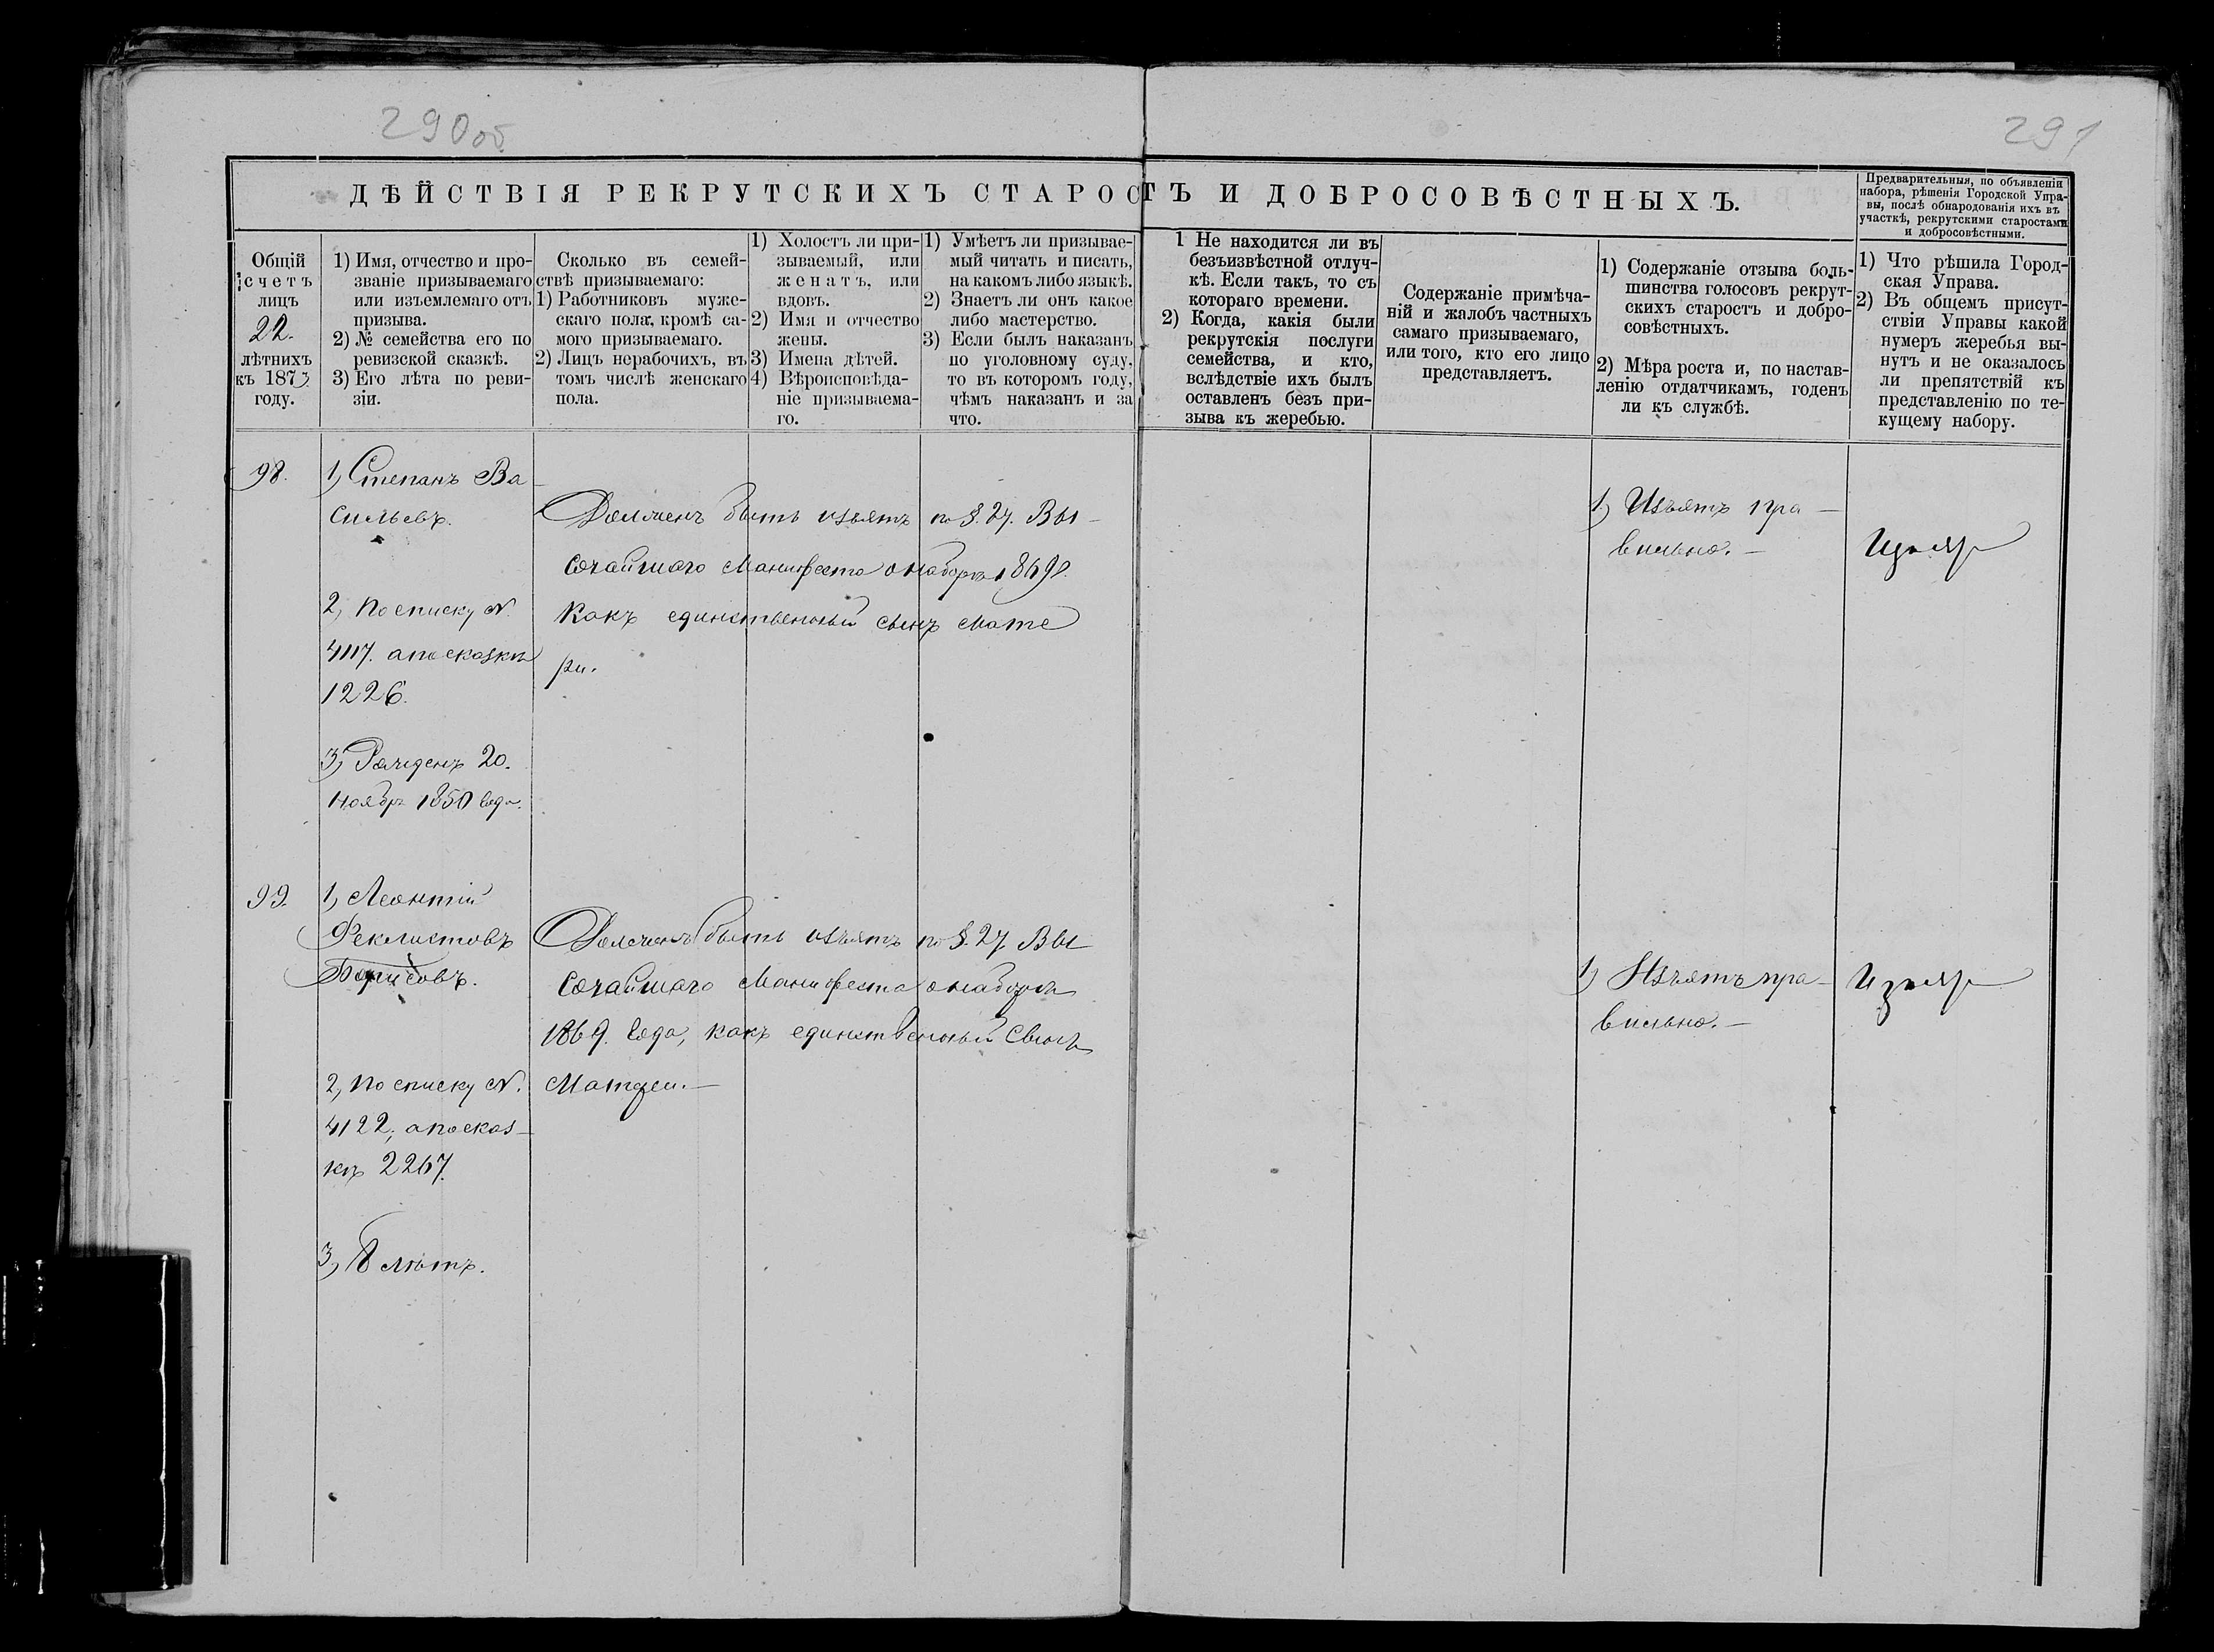 290об
291
ДѢЙСТВІЯ РЕКРУТСКИХЪ СТАРОСТЪ И ДОБРОСОВѢСТНЫХЪ.
Предварительныя, по объявленіи
набора, рѣшенія Городской Упра-
вы, послѣ обнародованія ихъ въ
участкѣ, рекрутскими старостами
и добросовѣстными.
Общій
счетъ
лицъ
22.
лѣтнихъ
къ 1873
году.
1) Имя, отчество и про-
званіе призываемаго
или изъемлемаго отъ
призыва.
2) № семейства его по
ревизской сказкѣ.
3) Его лѣта по реви-
зіи.
Сколько въ семей-
ствѣ призываемаго:
1) Работниковъ муже-
скаго пола, кромѣ са-
мого призываемаго.
2) Лицъ нерабочихъ, въ
томъ числѣ женскаго
пола.
1) Холостъ ли при-
зываемый, или
женатъ, или
вдовъ.
2) Имя и отчество
жены.
3) Имена дѣтей.
4) Вѣроисповѣда-
ніе призываема-
го.
1) Умѣетъ ли призывае-
мый читать и писать,
на какомъ либо языкѣ.
2) Знаетъ ли онъ какое
либо мастерство.
3) Если былъ наказанъ
по уголовному суду,
то въ которомъ году,
чѣмъ наказанъ и за
что.
1 Не находится ли въ
безъизвѣстной отлуч-
кѣ. Если такъ, то съ
котораго времени.
2) Когда, какія были
рекрутскія послуги
семейства, и кто,
вслѣдствіе ихъ былъ
оставленъ безъ при-
зыва къ жеребью.
Содержаніе примѣча-
ній и жалобъ частныхъ
самаго призываемаго,
или того, кто его лицо
представляетъ.
1) Содержаніе отзыва боль-
шинства голосовъ рекрут-
скихъ старостъ и добро-
совѣстныхъ.
2) Мѣра роста и, по настав-
ленію отдатчикамъ, годенъ
ли къ службѣ.
1) Что рѣшила Город-
ская Управа.
2) Въ общемъ присут-
ствіи Управы какой
нумеръ жеребья вы-
нутъ и не оказалось
ли препятствій къ
представленію по те-
кущему набору.
98.
1) Степанъ Ва
сильевъ.
2, по списку N.
4117. а по сказкѣ
1226.
3) Рожденъ 20.
Ноябр 1850 года.
Долженъ быть изъятъ по §. 27. Вы-
сочайшаго Манифеста о наборѣ 1869.
Какъ единственный сынъ мате
ри.
1) Изъятъ пра-
вильно.-
Изъят
99.
1) Леонтій
Феклистовъ
Борисовъ.
2, по списку N.
4122, а по сказ-
кѣ 2267.
3) 8 лѣтъ.
Долженъ быть изъятъ по §. 27. Вы
сочайшаго Манифеста о наборѣ
1869. года, какъ единственный Сынъ
Матери.-
1) Изъятъ пра-
вильно.-
Изъят